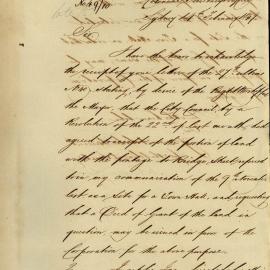 No. 49/80
Sydney
Sir,
I have the honor to acknowledge
the receipt of your letter of the 27th ultimo
stating, by desire of the Right Worshipful
the Mayor, that the City Council, by a
Resolution of the 22nd of last month, had
agreed to accept of the portion of land
with the frontage to Bridge Street referred
to in my communication of the 7th
last as a Site for a Town Hall, and requesting
that a Deed of Grant of the land in
question may be issued in favor of the
Corporation for the above purpose.